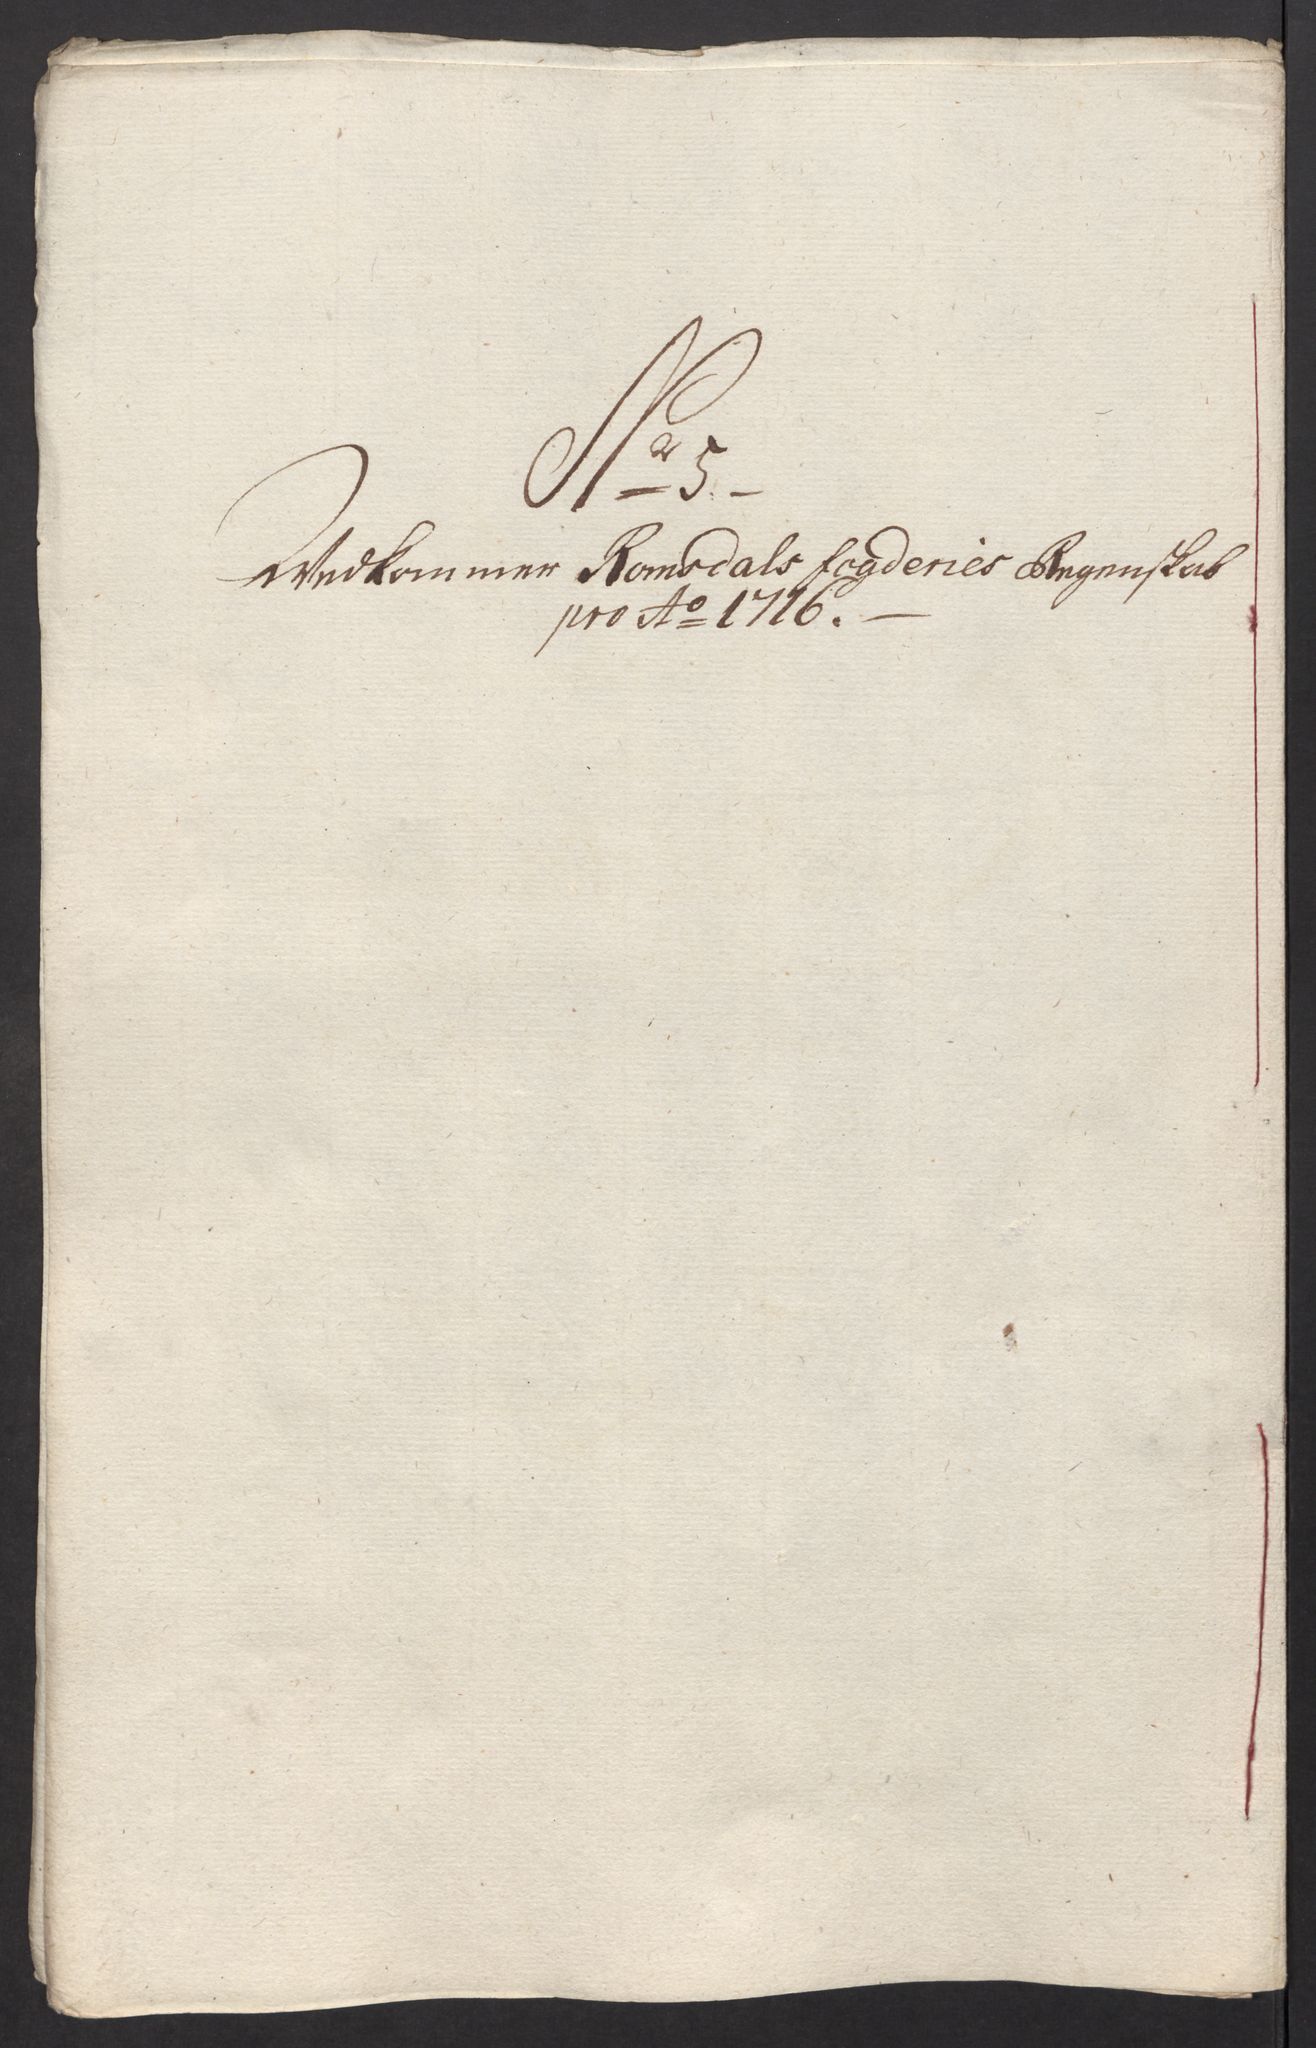 Nr 5. –
Vedkommer Romsdals fogderies Regenskab
pro Ao 1716. –